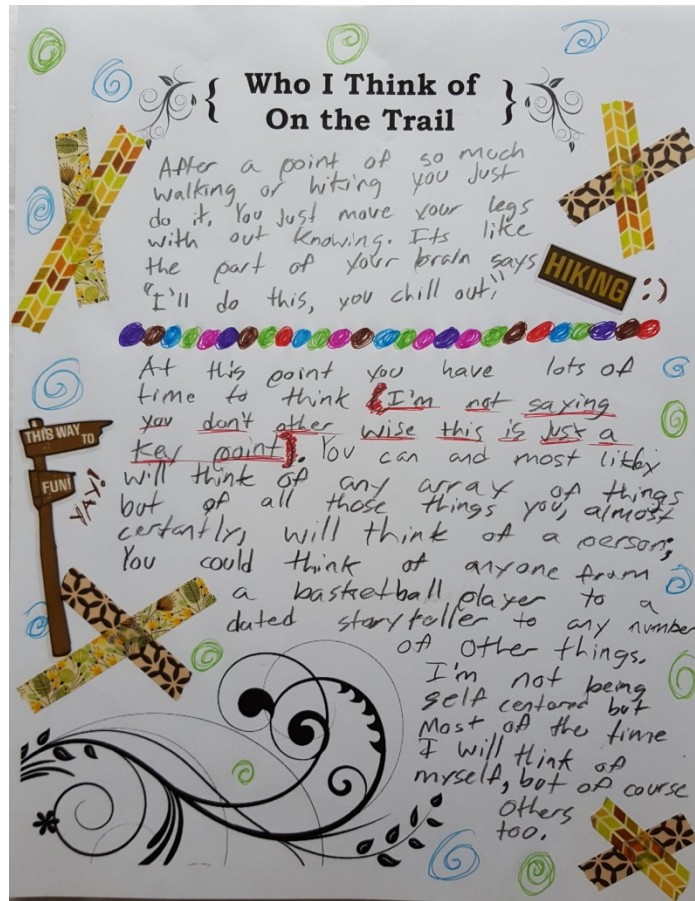 { Who I Think of
On the Trail }
After a point of so much
walking or hiking you just
do it. You just move your legs
with out knowing. Its like
the part of your brain says
"I'll do this, you chill out."
HIKING :)
At this point you have lots of
time to think {I'm not saying
you don't other wise this is just a
key point}. You can and most likley
will think of any array of things
but of all those things you, almost
certantly, will think of a person;
You could think of anyone from
a basketball player to a
dated storyteller to any number
of other things.
I'm not being
self centored but
Most of the time
I will think of
myself, but of course
others
too.
THIS WAY TO
FUN!
YAY!